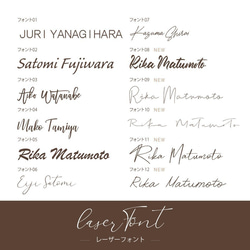 フォント07
JURI YANAGIHARA
Kazama Ghiru
フォント02
フォント08 NEW
Satomi Fujiwara
Rika Matumoto
フォント03
フォント09 NEW
Aiko Watanabe
Rika Matumoto
フォント04
フォント10 NEW
Mako Tamiya
Rika Matumoto
フォント05
フォント11 NEW
Rika Matumoto
Rika Matumoto
フォント06
フォント12 NEW
Eiji Satomi
Rika Matumoto
laser font
レーザーフォント